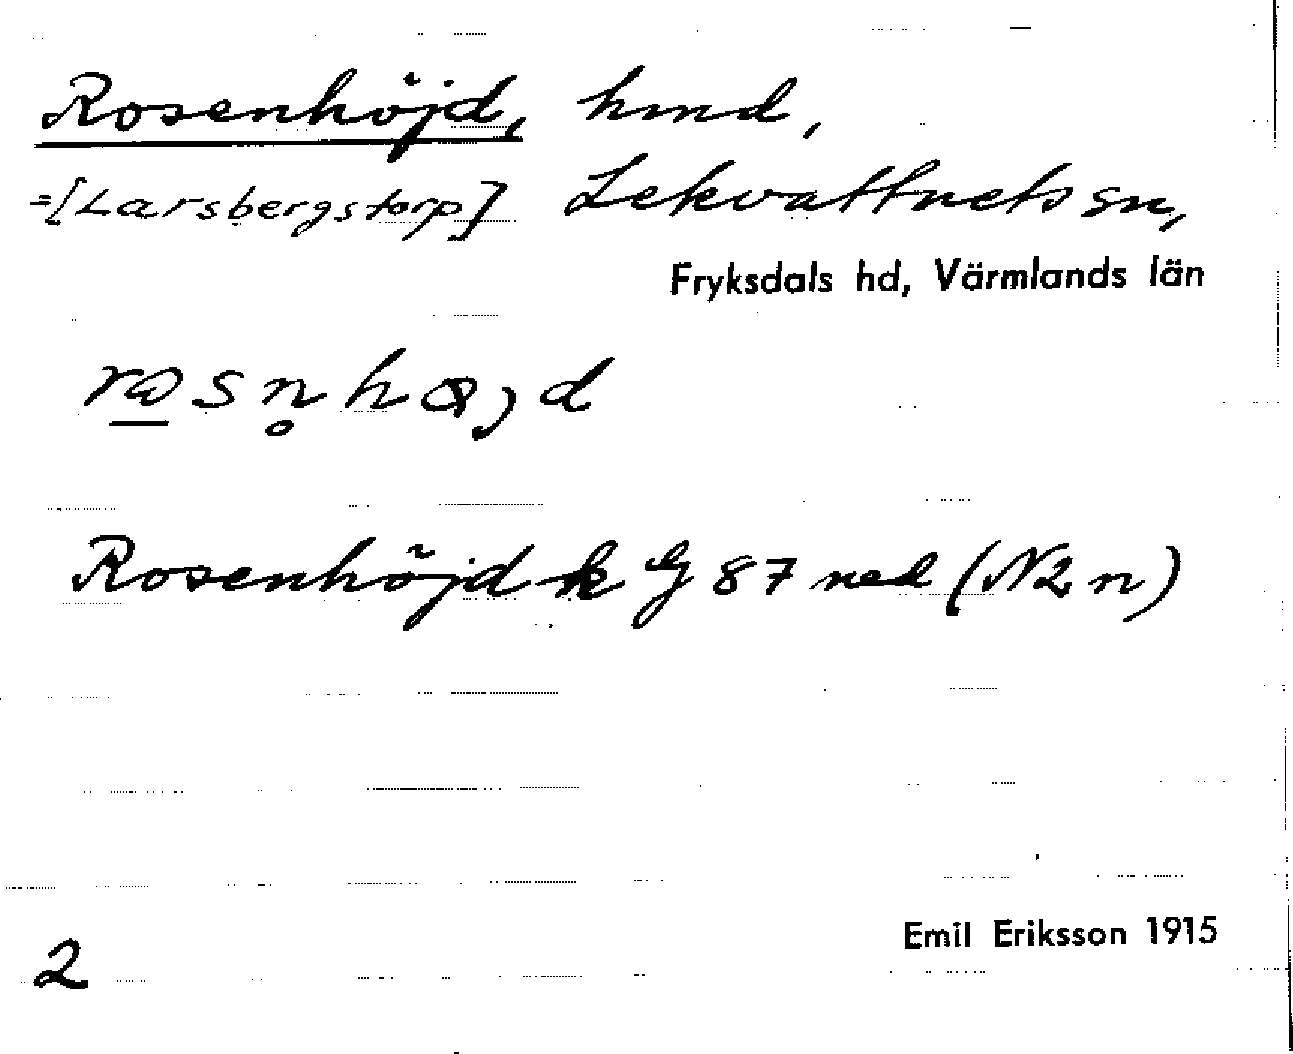 Rosenhöjd, hmd,
=[Larsbergstorp] Lekvattnets sn,
Fryksdals hd, Värmlands län
Rosenhöjd k G 87 ned (N2n)
Emil Eriksson 1915
2